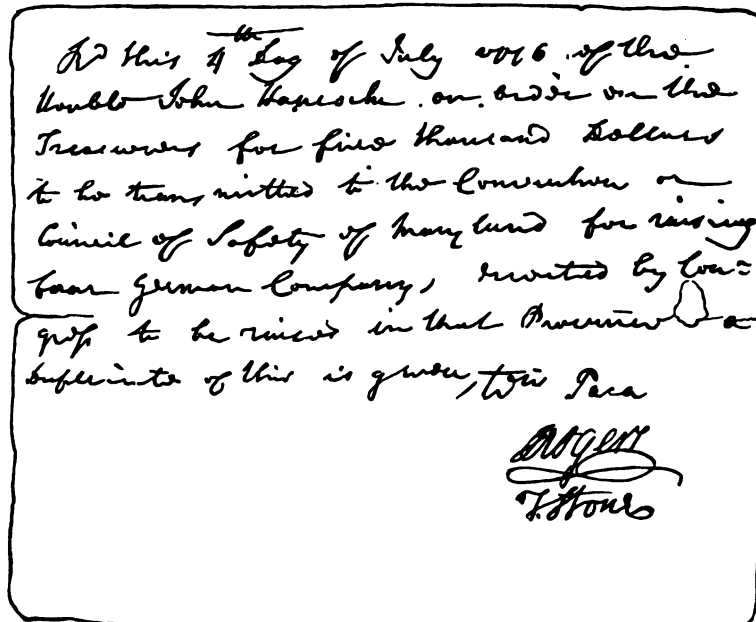 Rd this 4th Day of July 1776 of the
Honble John Hancock an order on the
Treasurers for five thousand Dollars
to be transmitted to the Convention or
Council of Safety of Maryland for raising
four German Company, directed by Con=
gress to be raised in that Province a
Duplicate of this is given, Wm Paca
DRogers
T. Stone